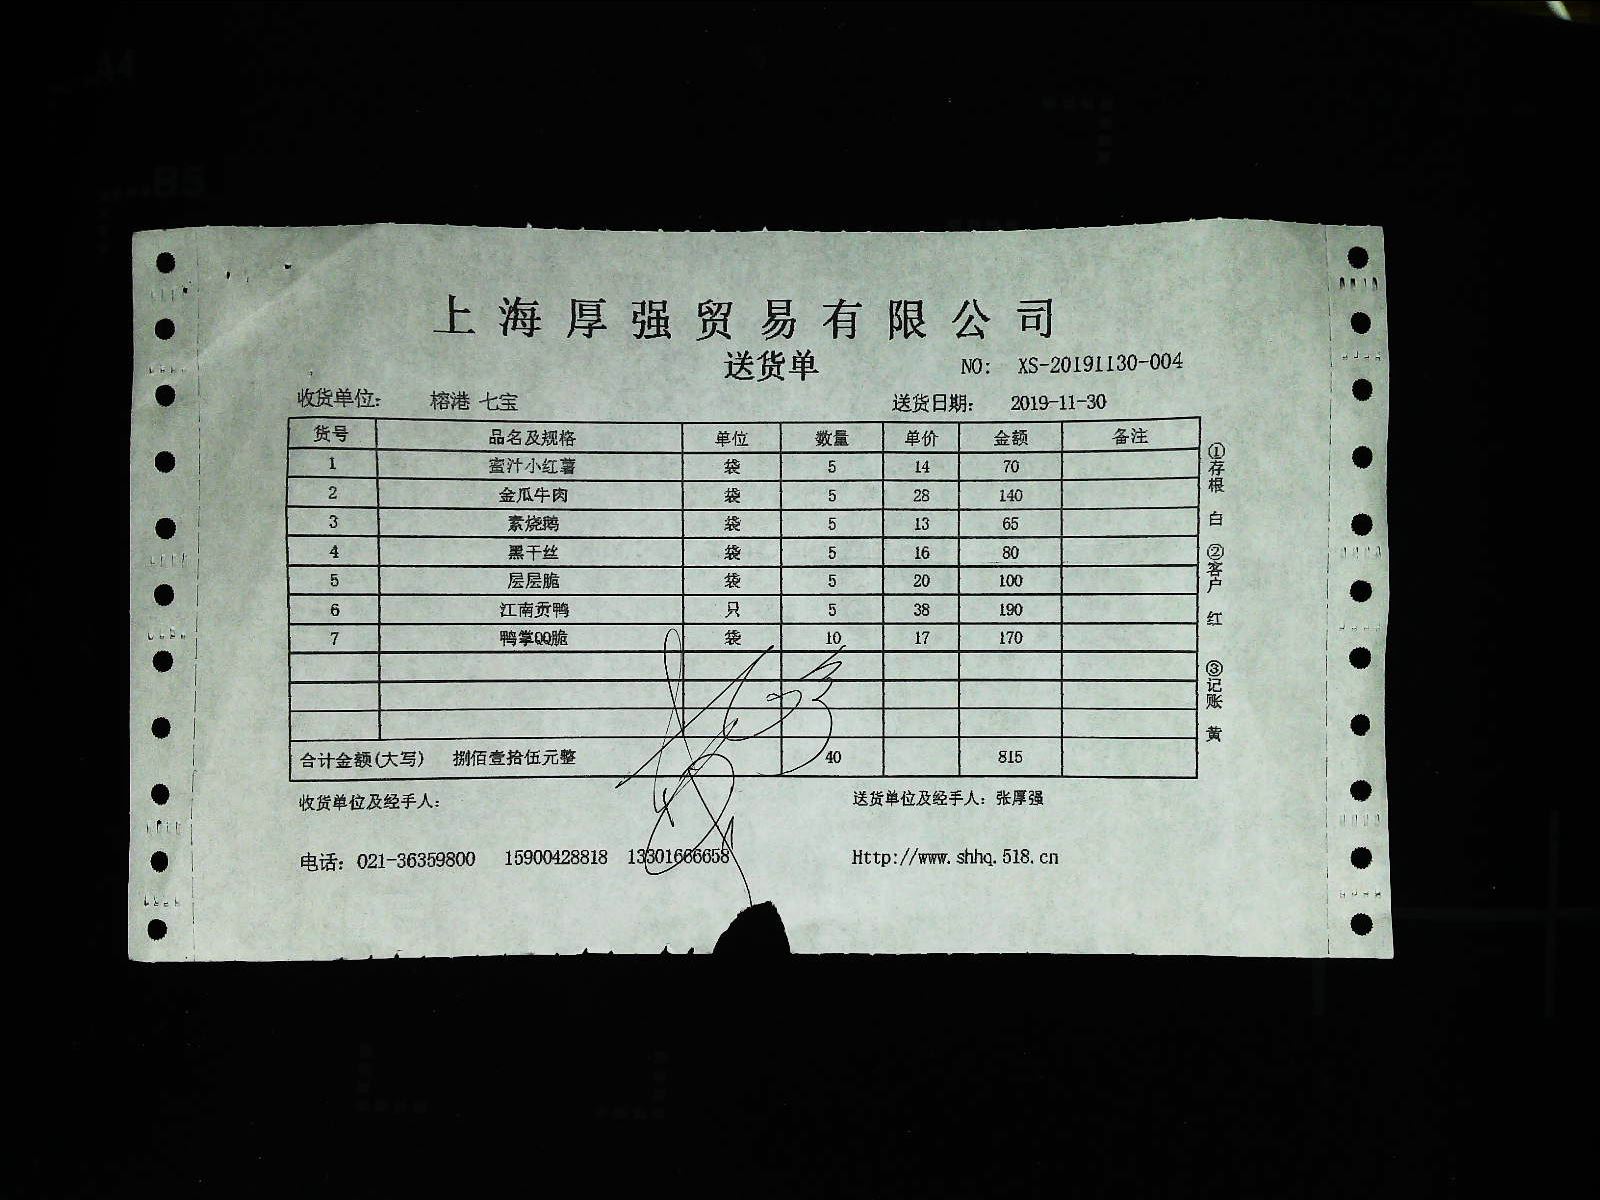 上海厚强贸易有限公司
送货单 NO: XS-20191130-004
收货单位: 榕港 七宝 送货日期: 2019-11-30
货号 品名及规格 单位 数量 单价 金额 备注
1 蜜汁小红薯 袋 5 14 70
2 金瓜牛肉 袋 5 28 140
3 素烧鹅 袋 5 13 65
4 黑干丝 袋 5 16 80
5 层层脆 袋 5 20 100
6 江南贡鸭 只 5 38 190
7 鸭掌QQ脆 袋 10 17 170
合计金额(大写) 捌佰壹拾伍元整 40 815
收货单位及经手人: 送货单位及经手人: 张厚强
电话: 021-36359800 15900428818 13301666658 Http://www.shhq.518.cn
①存根 白 ②客户 红 ③记账 黄